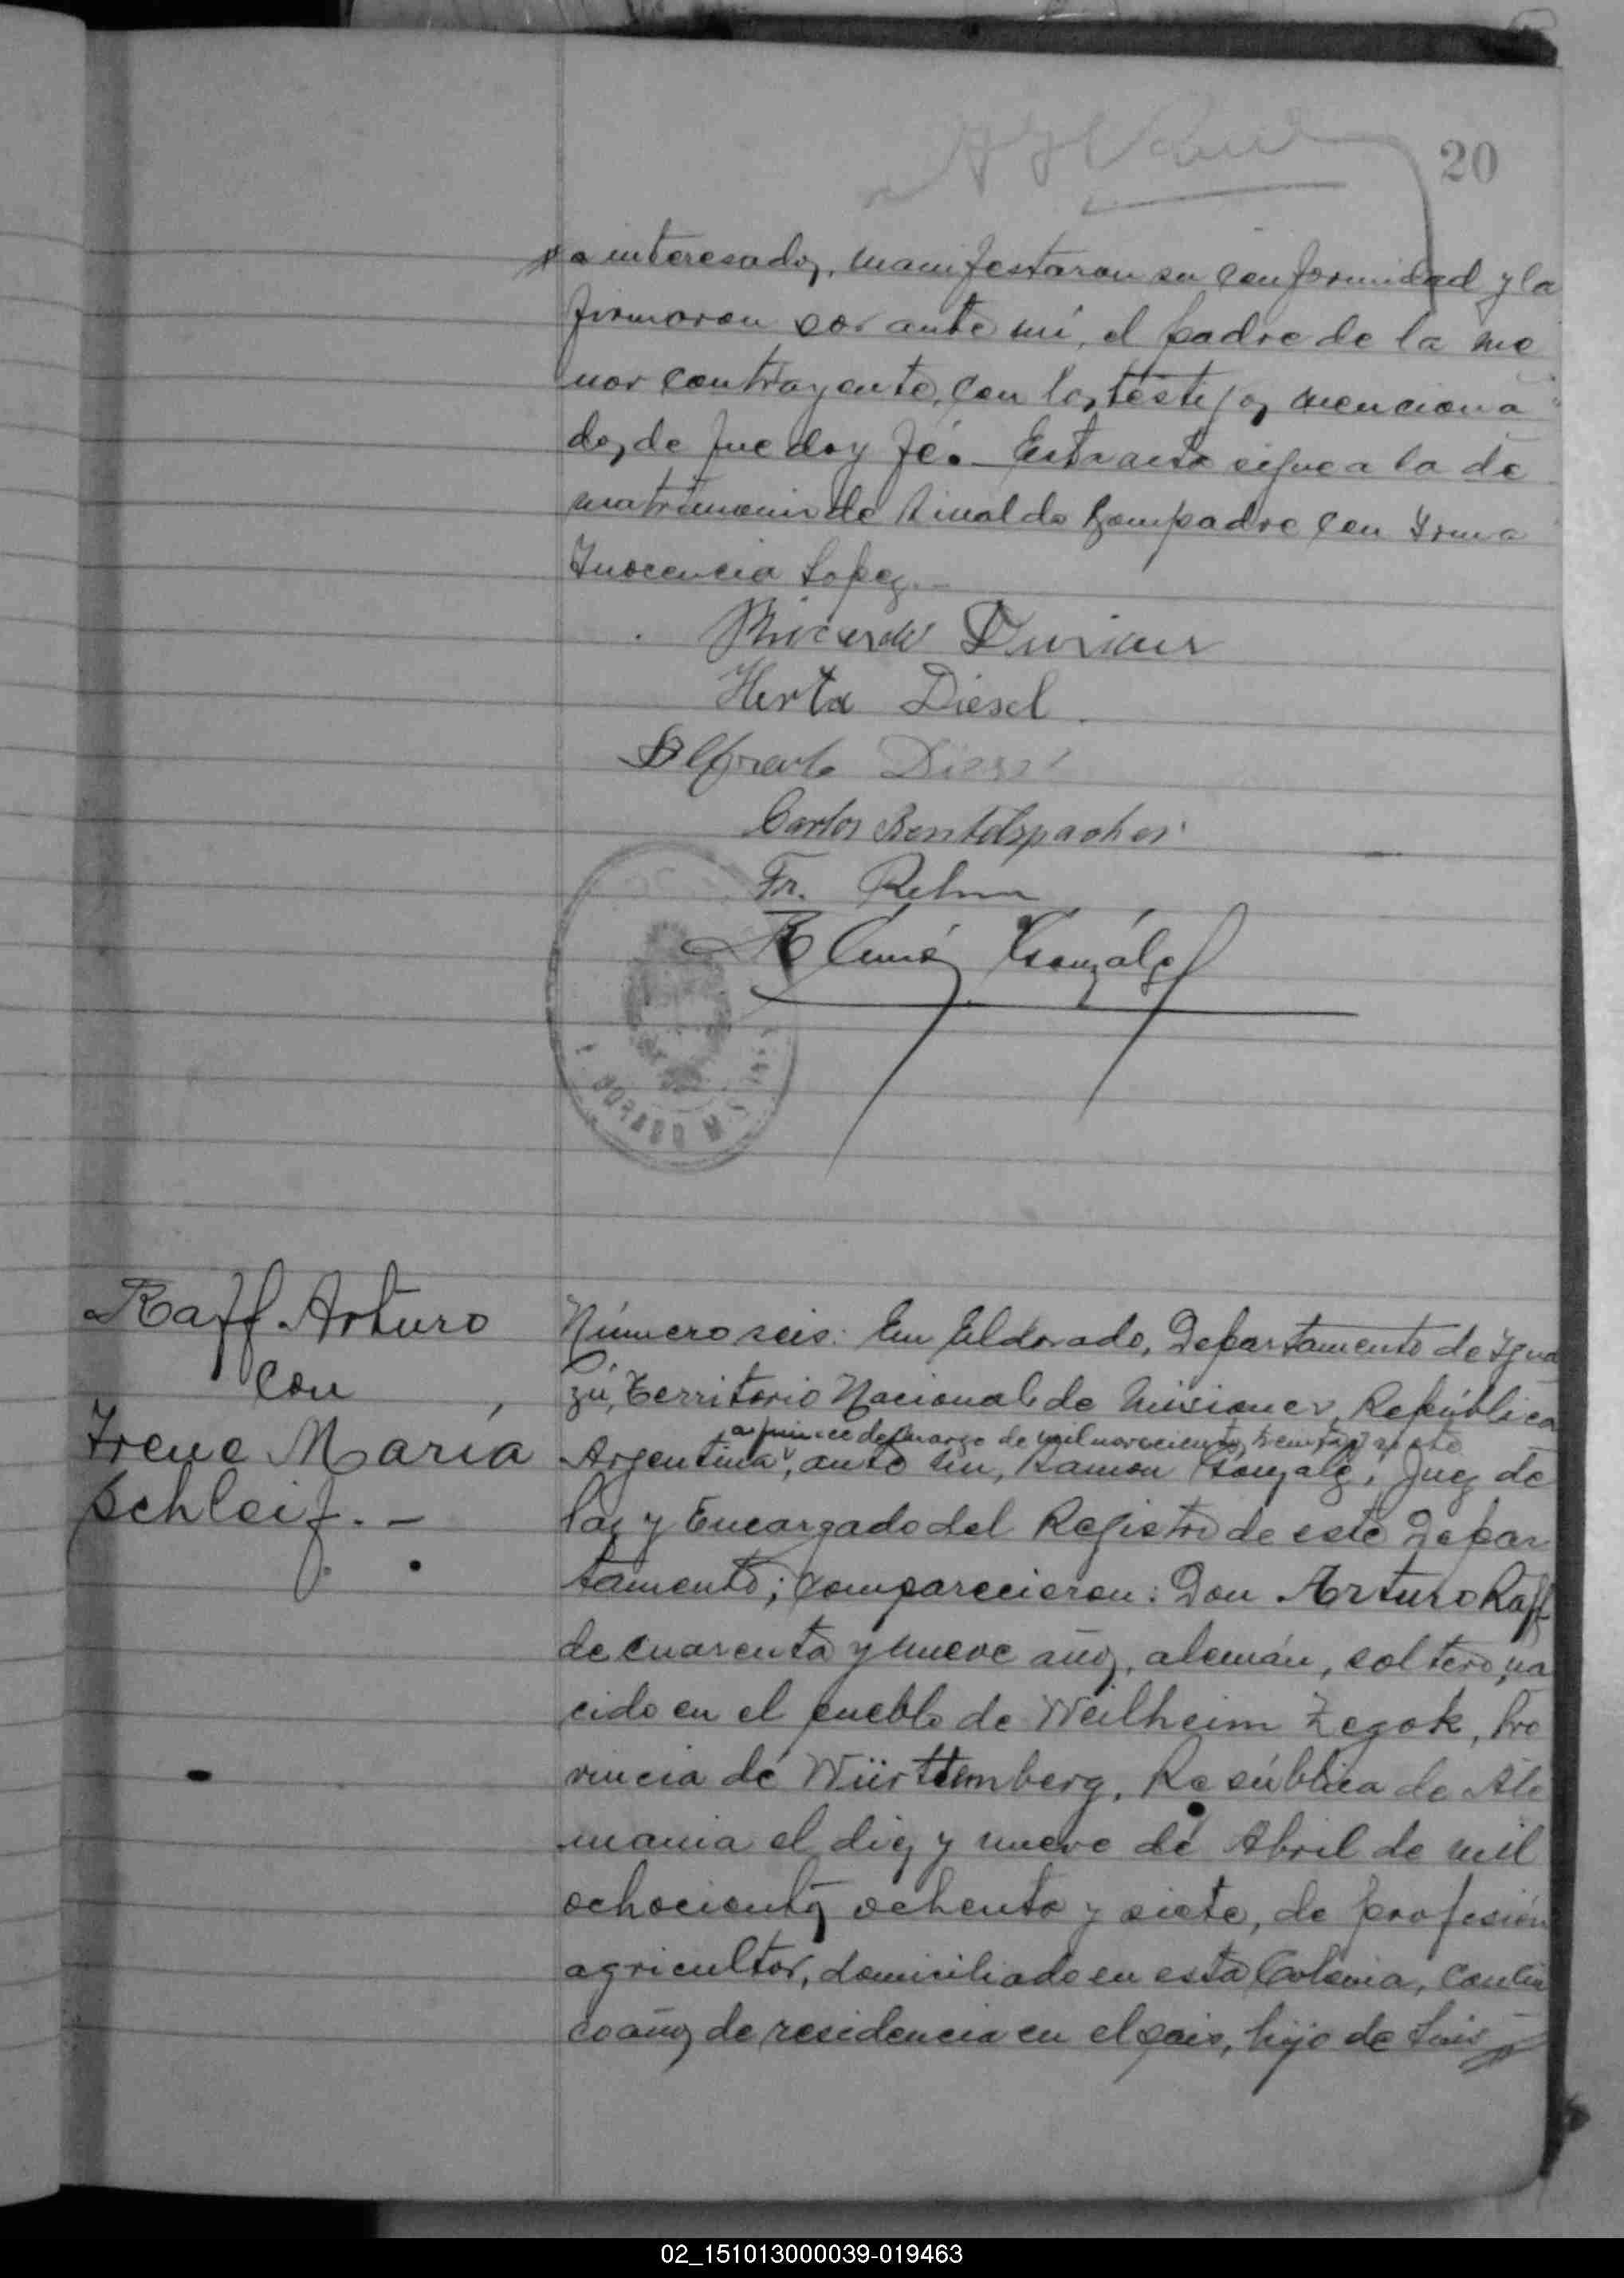 20
a interesados, manifestaron su conformidad y la
firmaron por ante mí, el padre de la me
nor contrayente, con los testigos menciona
dos, de que doy fé. Esta acta sigue a la de
matrimonio de Rinaldo Compadre con Irma
Inocencia Lopez.-
Ricardo
Herta Diesel
Alfredo Diesel
Carlos
Fr. Rehm
Ramón González
ELDORADO
Raff Arturo
con
Irene María
Schleif.-
Número seis: En Eldorado, Departamento de Igua
zú, Territorio Nacional de Misiones, República
a quince de Marzo de mil novecientos treinta y siete
Argentina, ante mi, Ramon González, Juez de
Paz y Encargado del Registro de este Depar
tamento; comparecieron: Don Arturo Raff
de cuarenta y nueve años, alemán, soltero, na
cido en el pueblo de Weilheim, Pro
vincia de Württemberg, República de Ale
mania el diez y nueve de Abril de mil
ochocientos ochenta y siete, de profesión
agricultor, domiciliado en esta Colonia, con cin
co años de residencia en el pais, hijo de Luis
02_151013000039-019463